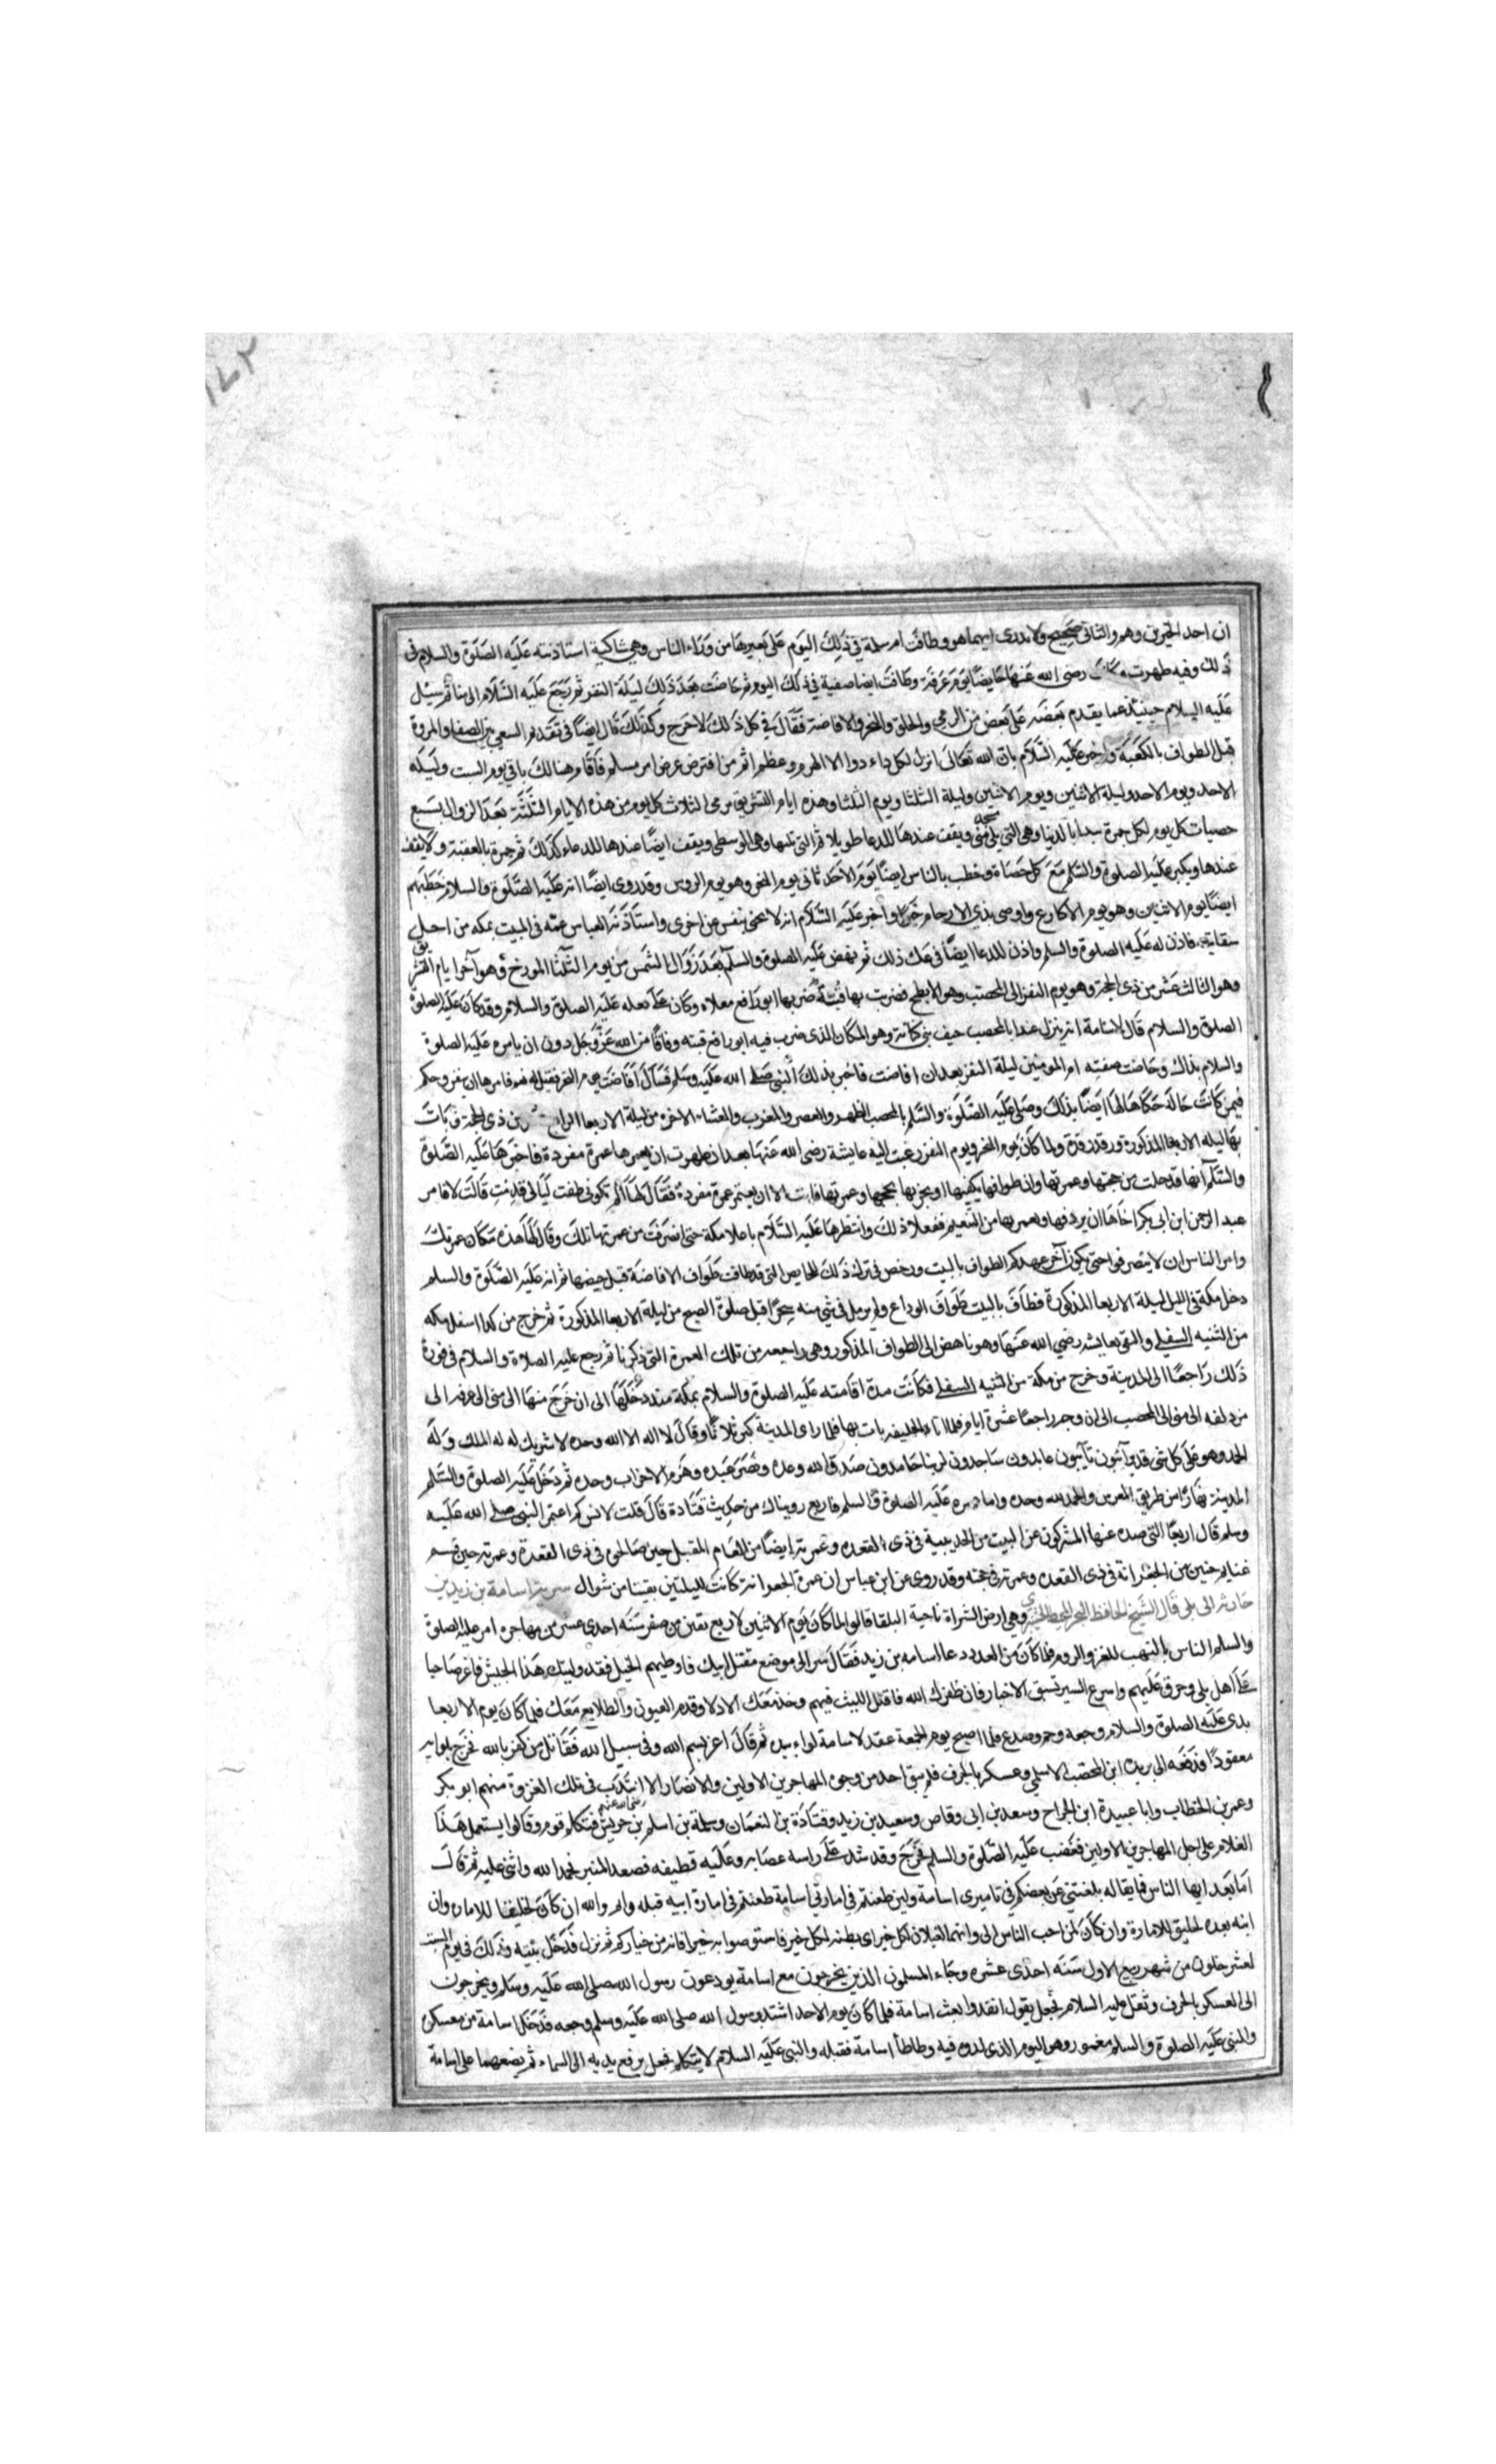 ان احد الخبرين وهم والثانى صحيح ولا ندرى ايهما هو وطافت ام سلمة في ذلك اليوم على بعيرها من وراء الناس وهي شاكية استاذنته عليه الصلوة والسلام فى
ذلك وفيه طهرت رضى الله عنها حايضا يوم عرفة وطافت ايضا صفية في ذلك اليوم ثم حاضت بعد ذلك ليلة النفر ثم رجع عليه السلام الى منا ثم سيل
عليه السلام حينئذ عما يقدم بعضه على بعض من الرمي والحلق والنحر والافاضة فقال في كل ذلك لا حرج وكذلك قال ايضا في تقدم السعي بين الصفا والمروة
قبل الطواف بالكعبة واخبر عليه السلام بان الله تعالى انزل لكل داء دوا الا الهرم وعظم اثم من افترض عرض امر مسلم فاقام هنالك باقي يوم السبت وليلة
الاحد ويوم الاحد وليلة الاثنين ويوم الاثنين وليلة الثلثا ويوم الثلثا وهذه ايام التشريق رمى الثلاث كل يوم من هذه الايام الثلثة بعد الزوال بسبع
حصيات كل يوم لكل جمرة يبدا بالدنيا وهي التي تلى منى ويقف عندها للدعا طويلا ثم التى تليها وهى الوسطى ويقف ايضا عندها للدعاء كذلك ثم جمرة بالعقبة ولا يقف
عندها ويكبر عليه الصلوة والسلم مع كل حصاة وخطب بالناس ايضا يوم الاحد ثانى يوم النحر وهو يوم الروس وقد روى ايضا انه عليه الصلوة والسلام خطبهم
ايضا يوم الاثنين وهو يوم الاكارع واوصى بذى الارحام خيرا واخبر عليه السلام انه لا تجنى نفس عن اخرى واستاذنه العباس عمه فى المبيت بمكه من اجل
سقايته فاذن له عليه الصلوة والسلم واذن للدعا ايضا فى مثل ذلك ثم نهض عليه الصلوة والسلم بعد زوال الشمس من يوم الثلثا المورخ وهو آخر ايام التشريق
وهو الثالث عشر من ذى الحجة وهو يوم النفر الى المحصب وهو الابطح فضربت بها قبته ضربها ابو رافع مولاه وكان على نعله عليه الصلوة والسلام وقد كان عليه الصلوة
الصلوة والسلام قال لاسامة انه ينزل غدا بالمحصب خيف بنى كنانة وهو المكان الذى ضرب فيه ابو رافع قبته وفاقا من الله عز وجل دون ان يامره عليه الصلوة
والسلام بذلك وحاضت صفيه ام المومنين ليلة النفر بعد ان افاضت فاخبر بذلك النبى صلى الله عليه وسلم فسال افاضت يوم النحر فقيل له نعم فامرها ان ينفر وحكم
فيمن كانت حاله حكاها لها ايضا بذلك وصلى عليه الصلوة والسلم بالمحصب الظهر والعصر والمغرب والعشاء الاخرة من ليلة الاربعا الرابع من ذى الحجة وبات
بها ليله الاربعا المذكورة ورقد رقدة ولما كان يوم النحر ويوم النفر رغبت اليه عايشة رضى الله عنها بعد ان طهرت ان يعمرها عمرة مفردة فاخبرها عليه الصلوة
والسلم انها قد حلت من حجتها وعمرتها وان طوافها يكفيها او يجزيها لحجها وعمرتها فابت الا ان يعتمر عمرة مفردة فقال لها الم تكونى طفت ليالى قدمت قالت لا فامر
عبد الرحمن ابن ابى بكر اخاها ان يردفها ويعمر بها من التنعيم ففعلا ذلك وانتظرها عليه السلام باعلا مكة حتى انصرفت من عمرتها تلك وقال لها هذه مكان عمرتك
وامر الناس ان لا ينصرفوا حتى يكون آخر عهدكم الطواف بالبيت ورخص فى ترك ذلك للحايض التى قد طافت طواف الافاضة قبل حيضها ثم انه عليه الصلوة والسلم
دخل مكة فى الليل ليلة الاربعا المذكورة فطاف بالبيت طواف الوداع ولم يرمل في شي منه سحرا قبل صلوة الصبح من ليلة الاربعا المذكورة ثم خرج من كدا اسفل مكه
من الثنيه السفلى والتقى بعايشه رضي الله عنها وهو ناهض الى الطواف المذكور وهى راجعه من تلك العمرة التى ذكرنا ثم رجع عليه الصلاة والسلام فى فوره
ذلك راجعا الى المدينة وخرج من مكة من الثنيه السفلى فكانت مدة اقامته عليه الصلوة والسلام بمكة منذ دخلها الى ان خرج منها الى منى الى عرفه الى
مزدلفه الى منى الى المحصب الى ان وجه راجعا عشرة ايام فلما اتا ذا الحليفه بات بها فلما راى المدينة كبر ثلاثا وقال لا اله الا الله وحده لا شريك له له الملك وله
الحمد وهو على كل شى قدير آئبون تائبون عابدون ساجدون لربنا حامدون صدق الله وعده ونصر عبده وهزم الاحزاب وحده ثم دخل عليه الصلوة والسلم
المدينة نهارا من طريق المعرس والحمد لله وحده واما عمره عليه الصلوة والسلم فاربع رويناك من حديث قتادة قال قلت لانس كم اعتمر النبى صلى الله عليه
وسلم قال اربعا التى صده عنها المشركون عن البيت من الحديبية فى ذى القعده وعمرته ايضا من العام المقبل حين صالحوه فى ذى القعدة وعمرته حين قسم
غنايم حنين من الجعرانة فى ذى القعده وعمرته فى حجته وقد روى عن ابن عباس ان عمرة الجعرانة كانت لليلتين بقيتا من شوال سرية اسامة بن زيد بن
حارثه الى بلى قال الشيخ الحافظ وهي ارض الشراة ناحية البلقا قالوا لما كان يوم الاثنين لاربع بقين من صفر سنه احدى عشر من مهاجره امر عليه الصلوة
والسلم الناس بالتهب للغزو الروم فلما كان من الغد دعا اسامه بن زيد فقال سر الى موضع مقتل ابيك فاوطيهم الخيل فقد وليتك هذا الجيش فاغر صاحبا
على اهل بلى وحرق عليهم واسرع السير تسبق الاخبار فان ظفرك الله فاقلل اللبث فيهم وخذ معك الادلا وقدم العيون والطلايع معك فلما كان يوم الاربعا
بدى عليه الصلوة والسلام وجعه وحم وصدع فلما اصبح يوم الجمعة عقد لاسامة لواء بيده ثم قال اغز بسم الله وفى سبيل الله فقاتل من كفر بالله فخرج بلوايه
معقودا فدفعه الى بريدة ابن الحصيب الاسلمي وعسكر بالجرف فلم يبق احد من وجوه المهاجرين الاولين والانصار الا انتدب فى تلك الغزوة منهم ابو بكر
وعمر بن الخطاب وابا عبيدة ابن الجراح وسعد بن ابى وقاص وسعيد بن زيد وقتادة بن النعمان وسلمة بن اسلم بن حريش رضى الله عنهم فتكلم قوم وقالوا يستعمل هذا
الغلام على اجل المهاجرين الاولين فغضب عليه الصلوة والسلم فخرج وقد شد على راسه عصابه وعليه قطيفه فصعد المنبر فحمد الله واثنى عليه ثم قال
اما بعد ايها الناس فما مقالة بلغتنى عن بعضكم في تاميرى اسامة ولين طعنتم في امارتي اسامة طعنتم فى امارة ابيه قبله وايم والله ان كان لخليقا للامارة وان
ابنه بعده لخليق للامارة وان كان لمن احب الناس الى وانهما لمخيلان لكل خير فاستوصوا به خيرا فانه من خياركم ثم نزل فدخل بيته وذلك في يوم السبت
لعشر خلون من شهر ربيع الاول سنه احدى عشره وجاء المسلمون الذين يخرجون مع اسامة يودعون رسول الله صلى الله عليه وسلم ويخرجون
الى العسكر بالجرف وثقل عليه السلام فجعل يقول انفذوا بعث اسامة فلما كان يوم الاحد اشتد برسول الله صلى الله عليه وسلم وجعه فدخل اسامة من معسكره
والنبى عليه الصلوة والسلم مغمور وهو اليوم الذى لدوه فيه وطاطأ اسامة فقبله والنبى عليه السلام لا يتكلم فجعل يرفع يديه الى السماء ثم يضعهما على اسامة